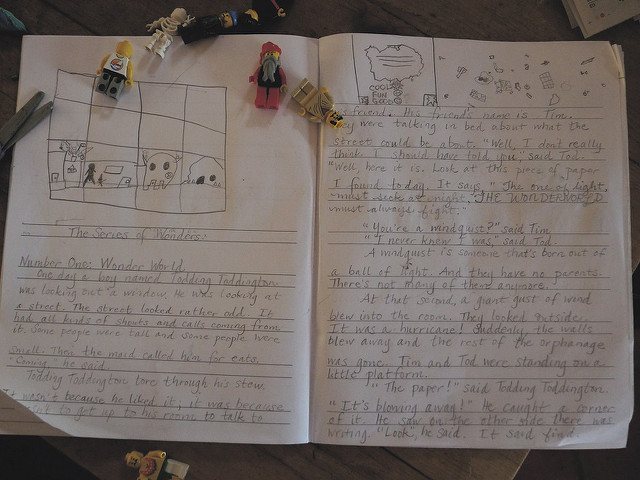 The Series of Wonders:
Number One: Wonder World
One day a boy named Todding Toddington
was looking out a window. He was looking at
a street. The street looked rather odd. It
had all kinds of shouts and calls coming from
it. Some people were tall and some people were
small. Then the maid called him for eats.
"Coming" he said.
Todding Toddington tore through his stew.
It wasn't because he liked it, it was because
to get up to his room to talk to
COOL
FUN
GOOD
his friend. His friends name is Tim.
They were talking in bed about what the
street could be about. "Well, I don't really
think I should have told you," said Tod.
"Well, here it is. Look at this piece of paper
I found today. It says, "The one of light,
must seek at night. THE WONDERWORLD
must always fight."
"You're a windguist?" said Tim
"I never knew I was," said Tod
A windguist is someone that's born out of
a ball of light. And they have no parents.
There's not many of them anymore.
At that second, a giant gust of wind
blew into the room. They looked outside.
It was a hurricane! Suddenly, the walls
blew away and the rest of the orphanage
was gone. Tim and Tod were standing on a
little platform.
"The paper!" said Todding Toddington.
"It's blowing away!" He caught a corner
of it. He saw on the other side there was
writing. "Look", he said. It said find